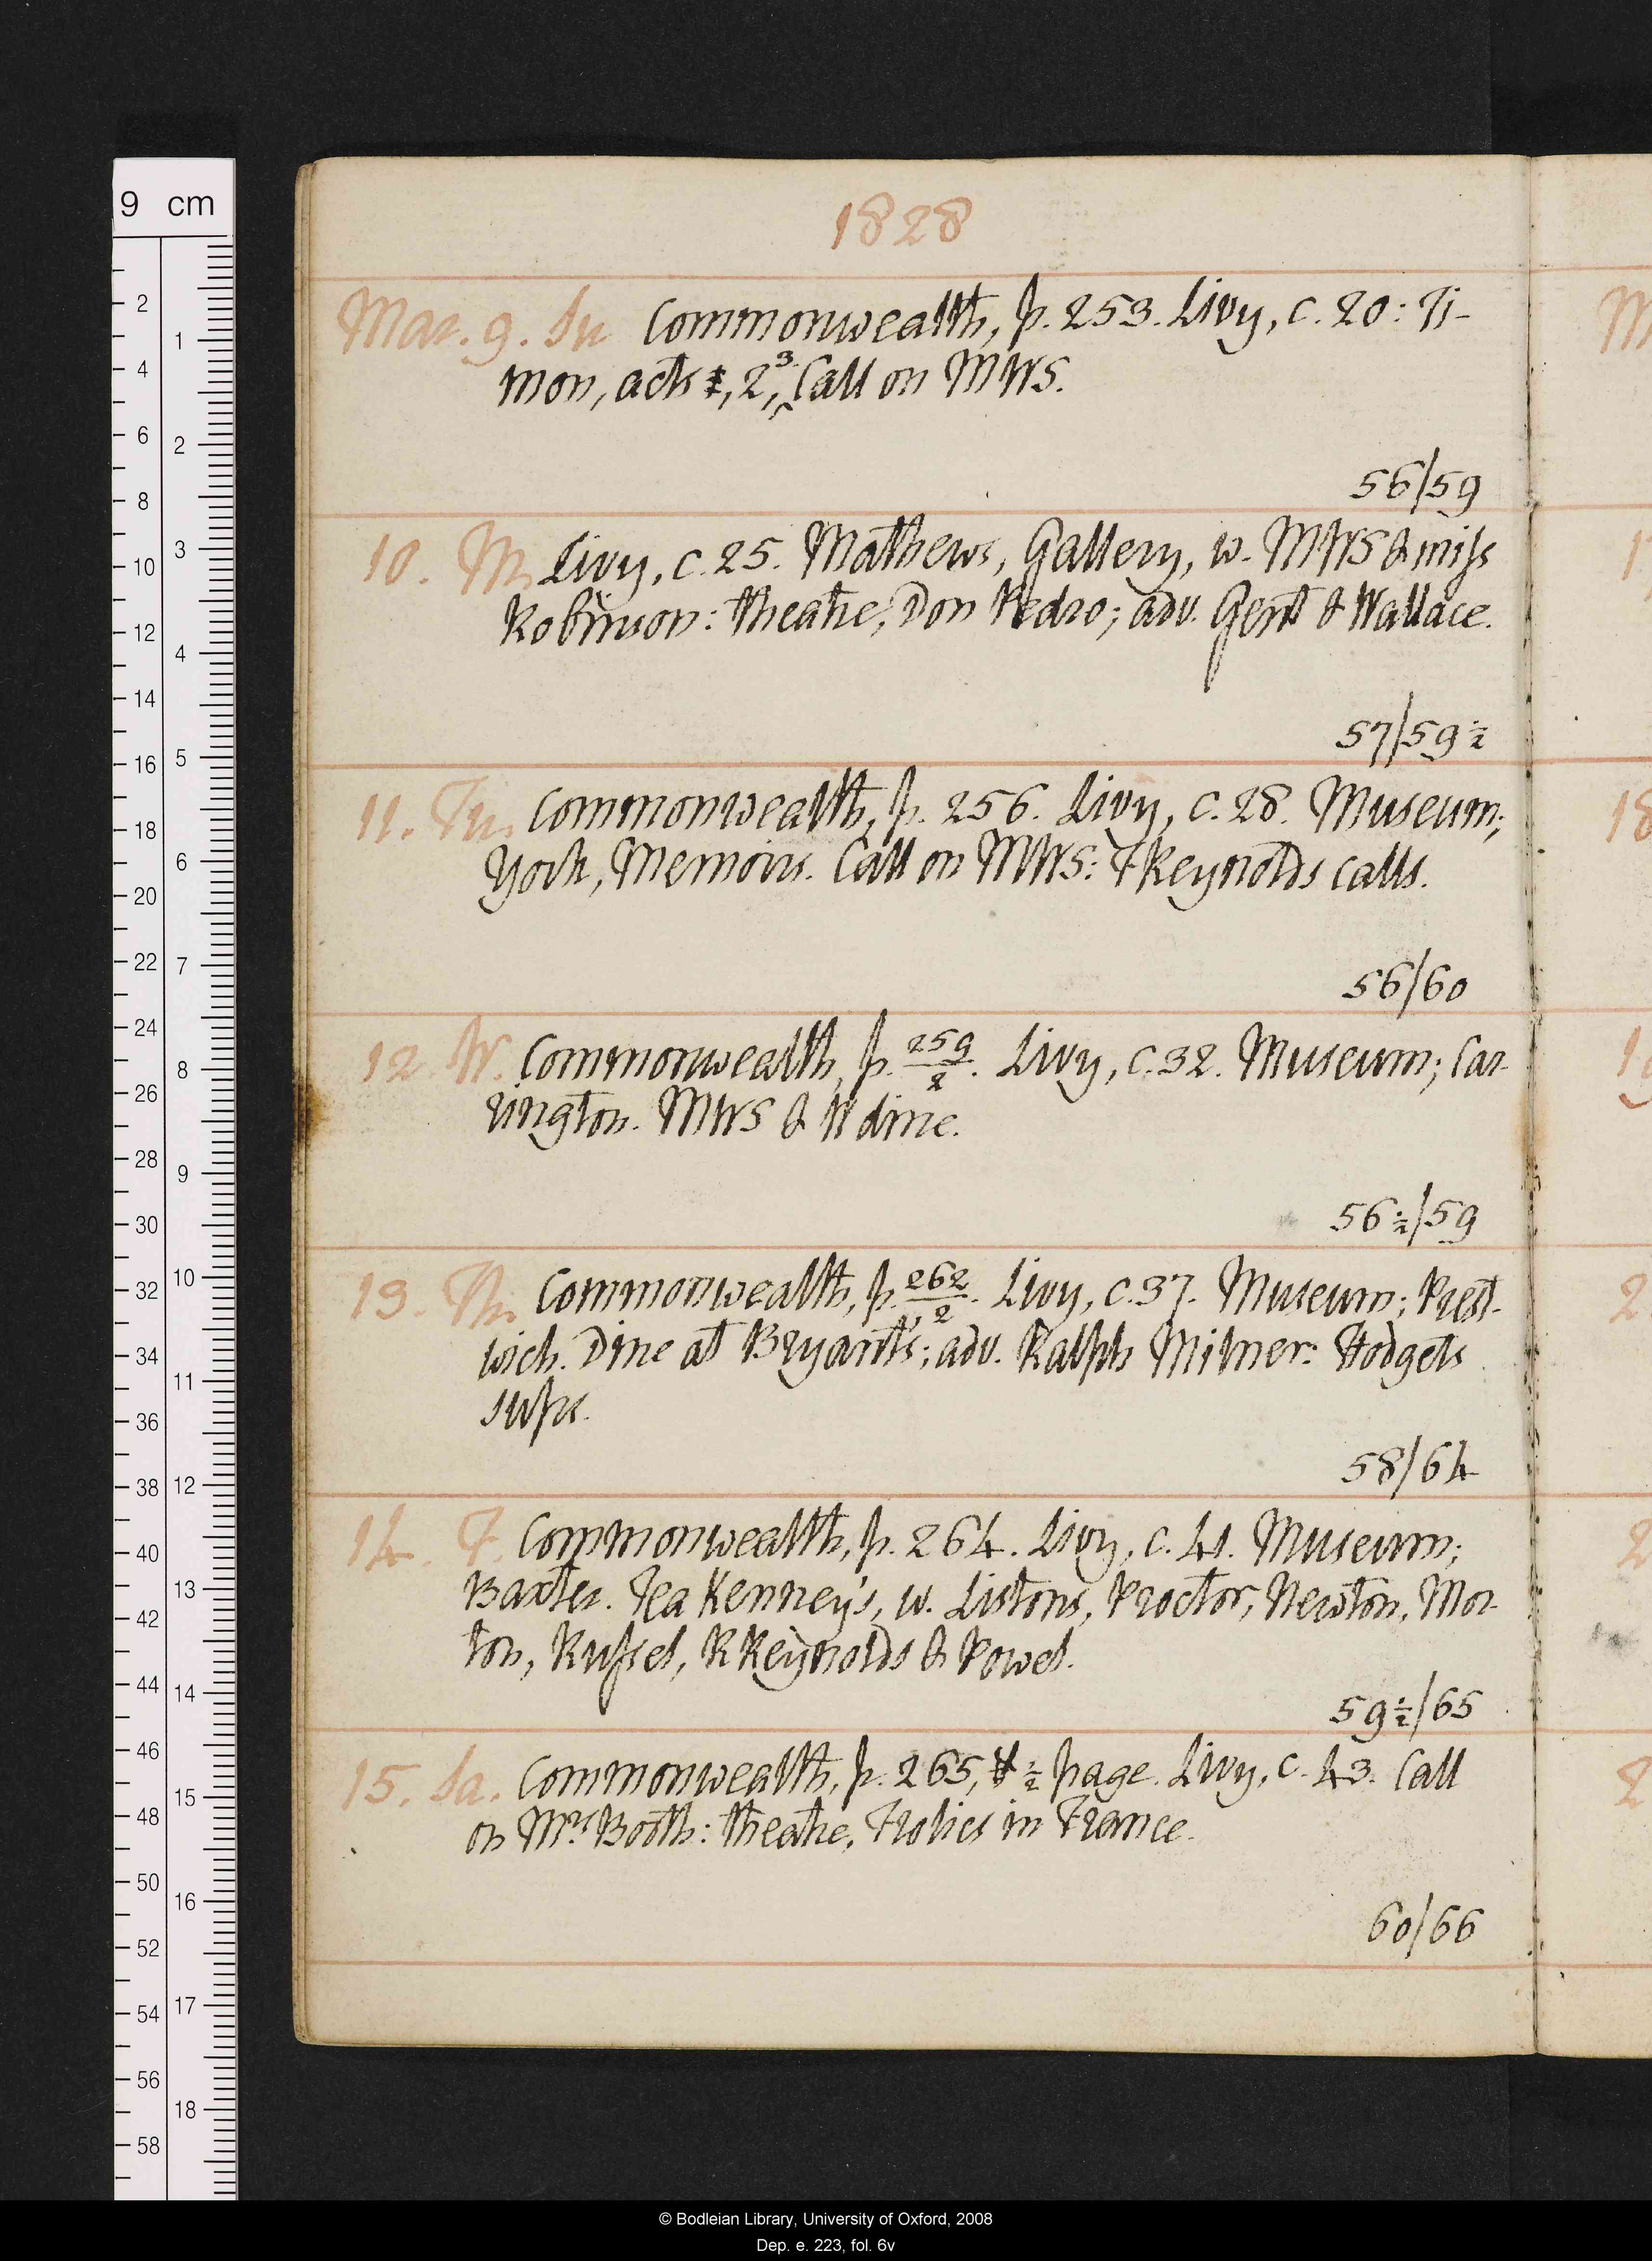 1828
Mar. 9. Su Commonwealth, p. 253. Livy, c. 20: Ti-
mon, acts 1, 2, 3. Call on MWS.
56/59
10. M. Livy, c. 25. Mathews, Gallery, w. MWS & miss
Robinson: theatre, Don Pedro; adv. Gent & Wallace.
57/59½
11. Tu. Commonwealth, p. 256. Livy, c. 28. Museum;
York, Memoirs. Call on MWS: F Reynolds calls.
56/60
12. W. Commonwealth, p. 259/2. Livy, c. 32. Museum; Car-
rington. MWS & W dine.
56½/59
13. Th. Commonwealth, p. 262/2. Livy, c. 37. Museum; Prest-
wich. Dine at Bryant's; adv. Ralph Milner: Hodgets
sups.
58/64
14. F. Commonwealth, p. 264. Livy, c. 41. Museum;
Baxter. Tea Kenney's, w. Listons, Proctor, Newton, Mor-
ton, Russel, R Reynolds & Powel.
59½/65
15. Sa. Commonwealth, p. 265, ½ page. Livy, c. 43. Call
on Mrs Booth: theatre, Frolics in France.
60/66
9 cm
© Bodleian Library, University of Oxford, 2008
Dep. e. 223, fol. 6v